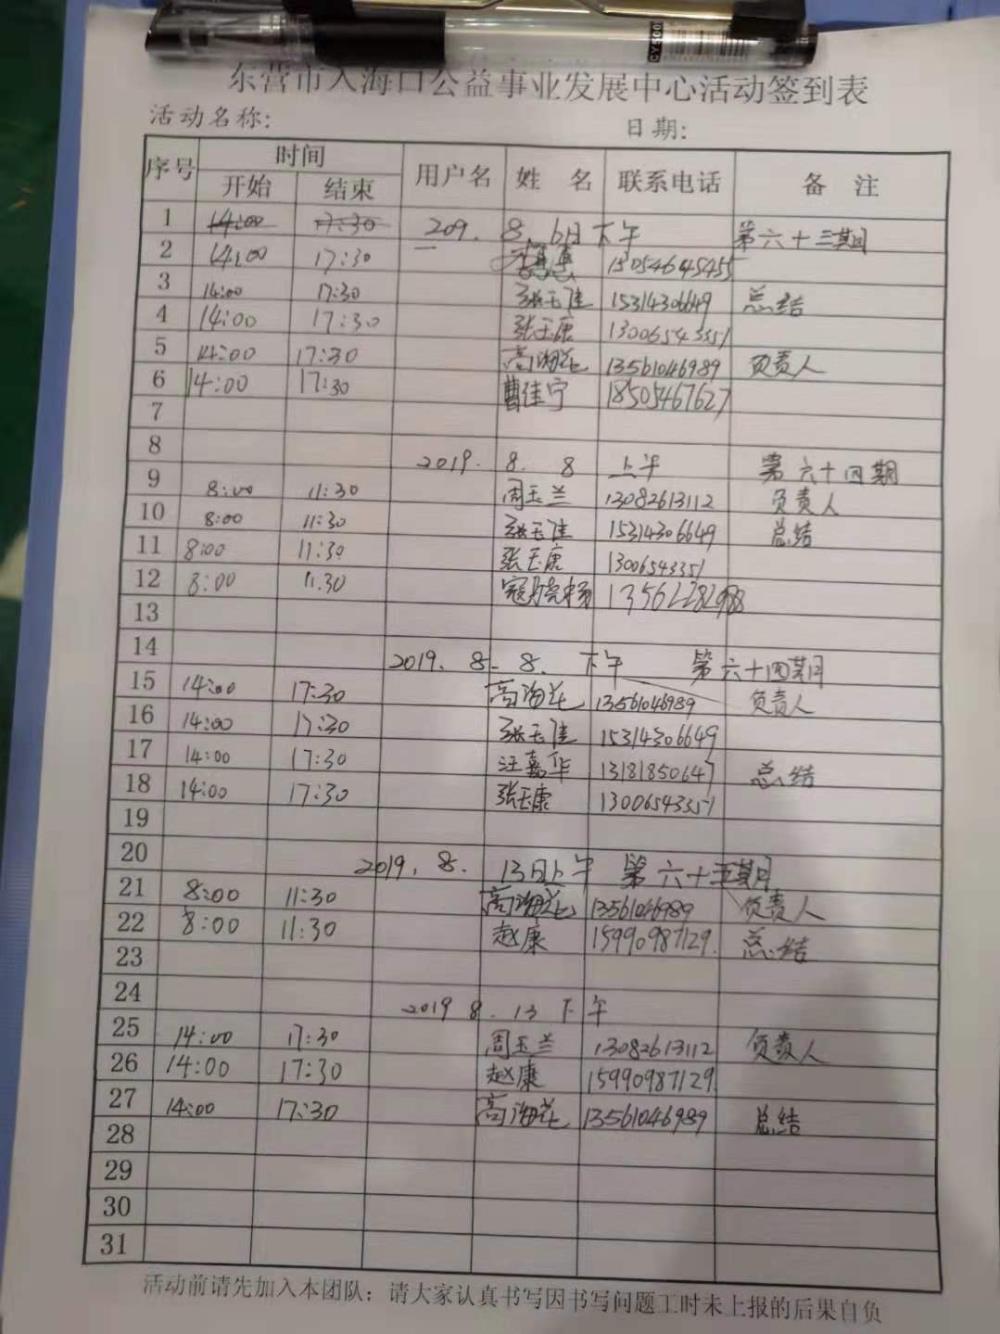 东营市入海口公益事业发展中心活动签到表
活动名称: 日期:
序号 时间 用户名 姓 名 联系电话 备 注
开始 结束
1 14:00 17:30 209. 8. 6日下午 第六十三期
2 14:00 17:30 15054645455
3 14:00 17:30 张玉佳 15314306649 总结
4 14:00 17:30 张玉康 13006543351
5 14:00 17:30 高海花 13561046989 负责人
6 14:00 17:30 曹佳宁 18505467627
7
8 2019. 8. 8 上午 第六十四期
9 8:00 11:30 周玉兰 13082613112 负责人
10 8:00 11:30 张玉佳 15314306649 总结
11 8:00 11:30 张玉康 13006543351
12 8:00 11.30 13562282988
13
14 2019. 8. 8. 下午 第六十四期
15 14:00 17:30 高海花 13561046989 负责人
16 14:00 17:30 张玉佳 15314306649
17 14:00 17:30 汪嘉华 13181850647 总结
18 14:00 17:30 张玉康 13006543351
19
20 2019. 8. 13日上午 第六十五期
21 8:00 11:30 高海花 13561046989 负责人
22 8:00 11:30 赵康 15990987129. 总结
23
24 2019 8. 13 下午
25 14:00 17:30 周玉兰 13082613112 负责人
26 14:00 17:30 赵康 15990987129
27 14:00 17:30 高海花 13561046989 总结
28
29
30
31
活动前请先加入本团队；请大家认真书写因书写问题工时未上报的后果自负